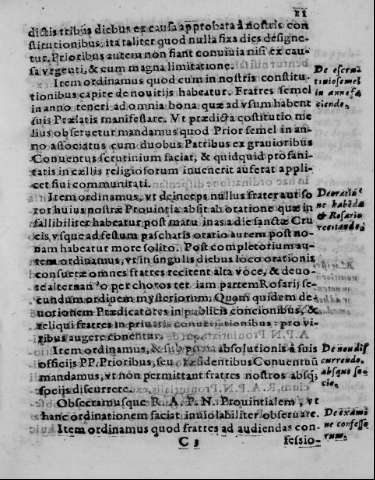 11
dictis tribus diebus ex causa approbata à nostris con
stitutionibus, ita taliter quod nulla fixa dies designe-
tur, Prioribus autem non fiant conviuia nisi ex cau-
sa vrgenti, & cum magna limitatione.
Item ordinamus quod cum in nostris constitu-
tionibus capite de nouitijs habeatur. Fratres semel
in anno teneri ad omnia bona quæ ad vsum habent
suis Prælatis manifestare. Vt prædicta costitutio me
lius obseruetur mandamus quod Prior semel in an-
no associatus cum duobus Patribus ex grauioribus
Conuentus scrutinium faciat, & quidquid profani-
tatis in cællis religiosorum inuenerit auferat appli-
cet siui communitati.
Item ordinamus, vt deinceps nullus frater aut so
ror huius nostræ Prouintia absit ab oratione quæ in
fallibiliter habeatur post matutinas a die sanctæ Cru
cis, vsque ad festum paschatis oratio autem post no-
nam habeatur more solito. Post completorium au-
tem ordinamus, vt in singulis diebus loco orationis
consuetæ omnes fratres recitent alta voce, & deuo-
te alternando per choros tertiam partem Rosarij se-
cundum ordinem mysteriorum. Quam quidem de-
uotionem Prædicatores in publicis concionibus, &
reliqui fratres in priuatis conuersationibus pro vi-
ribus augere conentur.
Item ordinamus, & sub pœna absolutionis à suis
officijs PP. Prioribus, seu Præsidentibus Conuentuũ
mandamus, vt non permittant fratres nostros absq;
socijs discurrere.
Obsecramusque R. A. P. N. Prouintialem, vt
hanc ordinationem faciat inuiolabiliter obseruare.
Item ordinamus quod fratres ad audiendas con-
C 3 fessio-
De
semel
in anno fa
cienda.
De oratio
ne habẽda
& Rosario
recitando.
De non dis
currendo
absque so-
cio.
De exami
ne confesso
rum.